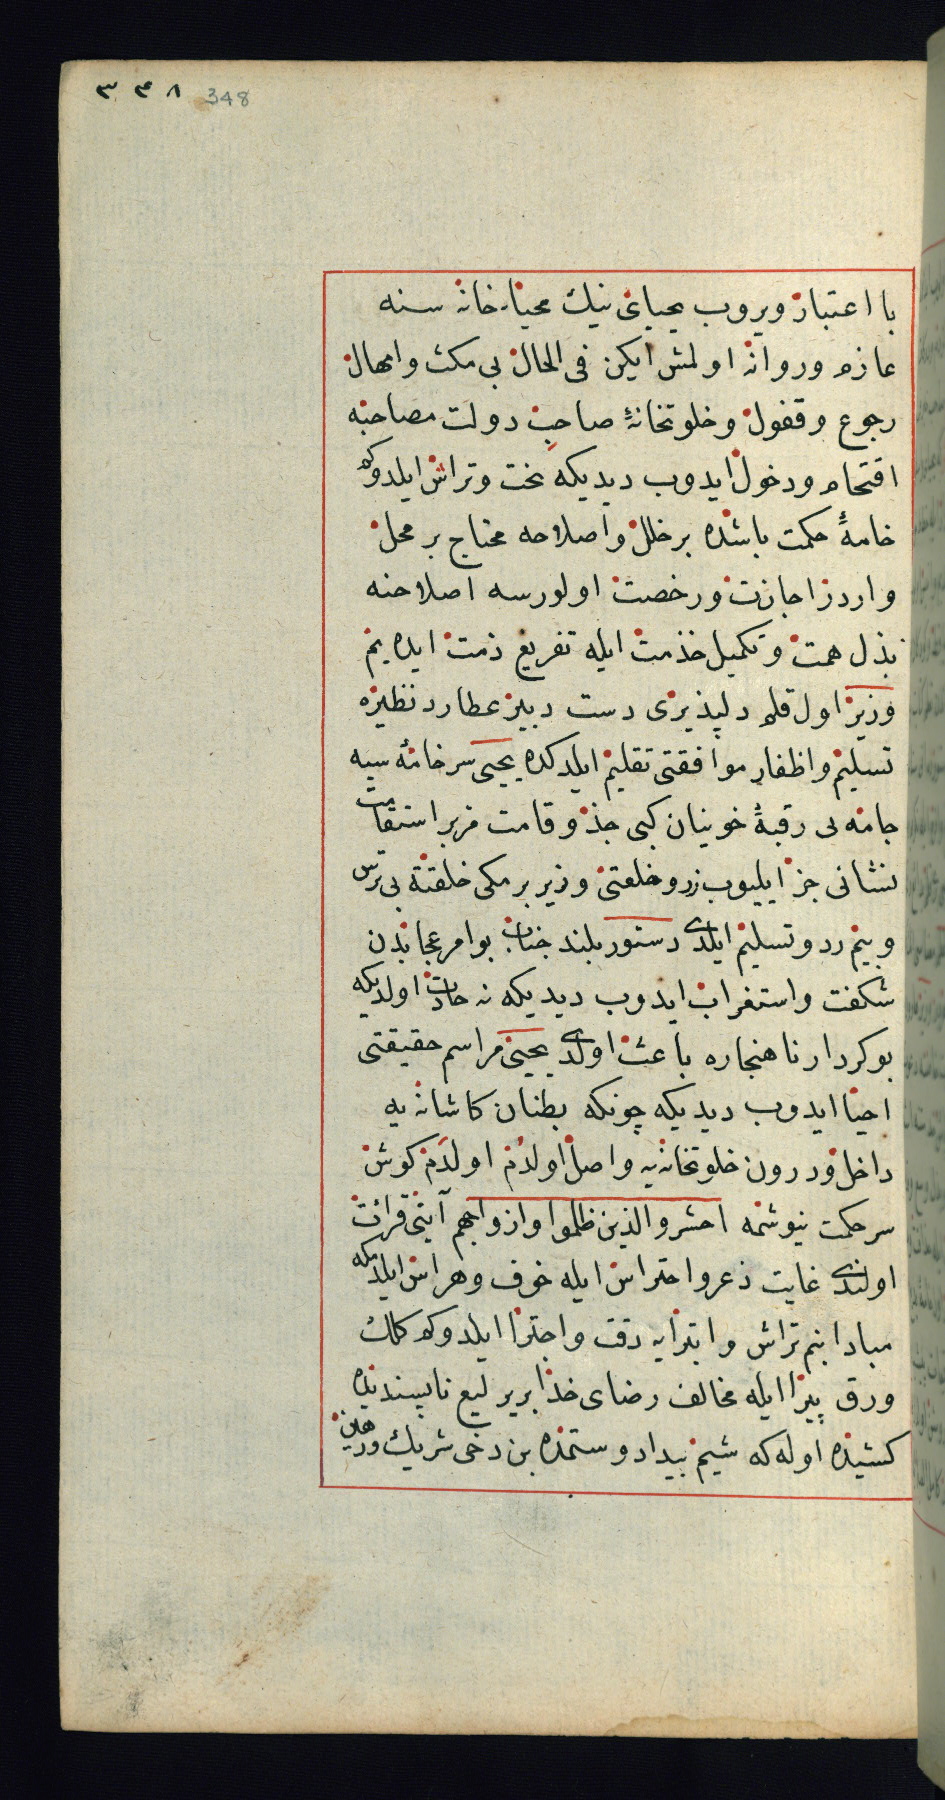 ٣٤٨ 348
با اعتبار ويروب يحيای نيك محيا خانه سنه
عازم وروانه اولمش ايكن فی الحال بی مكث وامهال
رجوع وقفول وخلوتخانهٔ صاحب دولت مصاحبنه
اقتحام ودخول ايدوب ديديكه نحت وتراش ايلدوكم
خامهٔ حكمت باشنده بر خلل واصلاحه محتاج بر محل
واردر اجازت ورخصت اولورسه اصلاحنه
بذل همت وتكميل خدمت ايله تفريغ ذمت ايده يم
وزير اول قلم دلپذيری دست دبير عطارد نظيره
تسليم واظفار موافقتی تقليم ايلدكده يحيی سر خامهٔ سيه
جامه یی رقبهٔ خونيان كبی جذ وقامت مزبر استقامت
نشانی جز ايليوب زر وخلعتی وزير برمكی خلقته بی ترس
وبيم رد وتسليم ايلدی دستور بلند جناب بو امر عجابدن
شكفت واستغراب ايدوب ديديكه نه حادث اولديكه
بو كردار ناهنجاره باعث اولدی يحيی مراسم حقيقتی
احيا ايدوب ديديكه چونكه بطنان كاشانه يه
داخل ودرون خلوتخانه يه واصل اولدم اولدم كوش
سر حكمت نيوشمه احشروا الذين ظلموا وازواجهم آيتی قرائت
اولندی غايت ذعر واحتراس ايله خوف وهراس ايلدمكه
مبادا بنم تراش وابترايه دقت واجترا ايلدوكم كلك
ورق پيرا ايله مخالف رضای خدا بر يرليغ ناپسنديده
كشيده اوله كه شيم بيداد وستمده بن دخی شريك ورهين